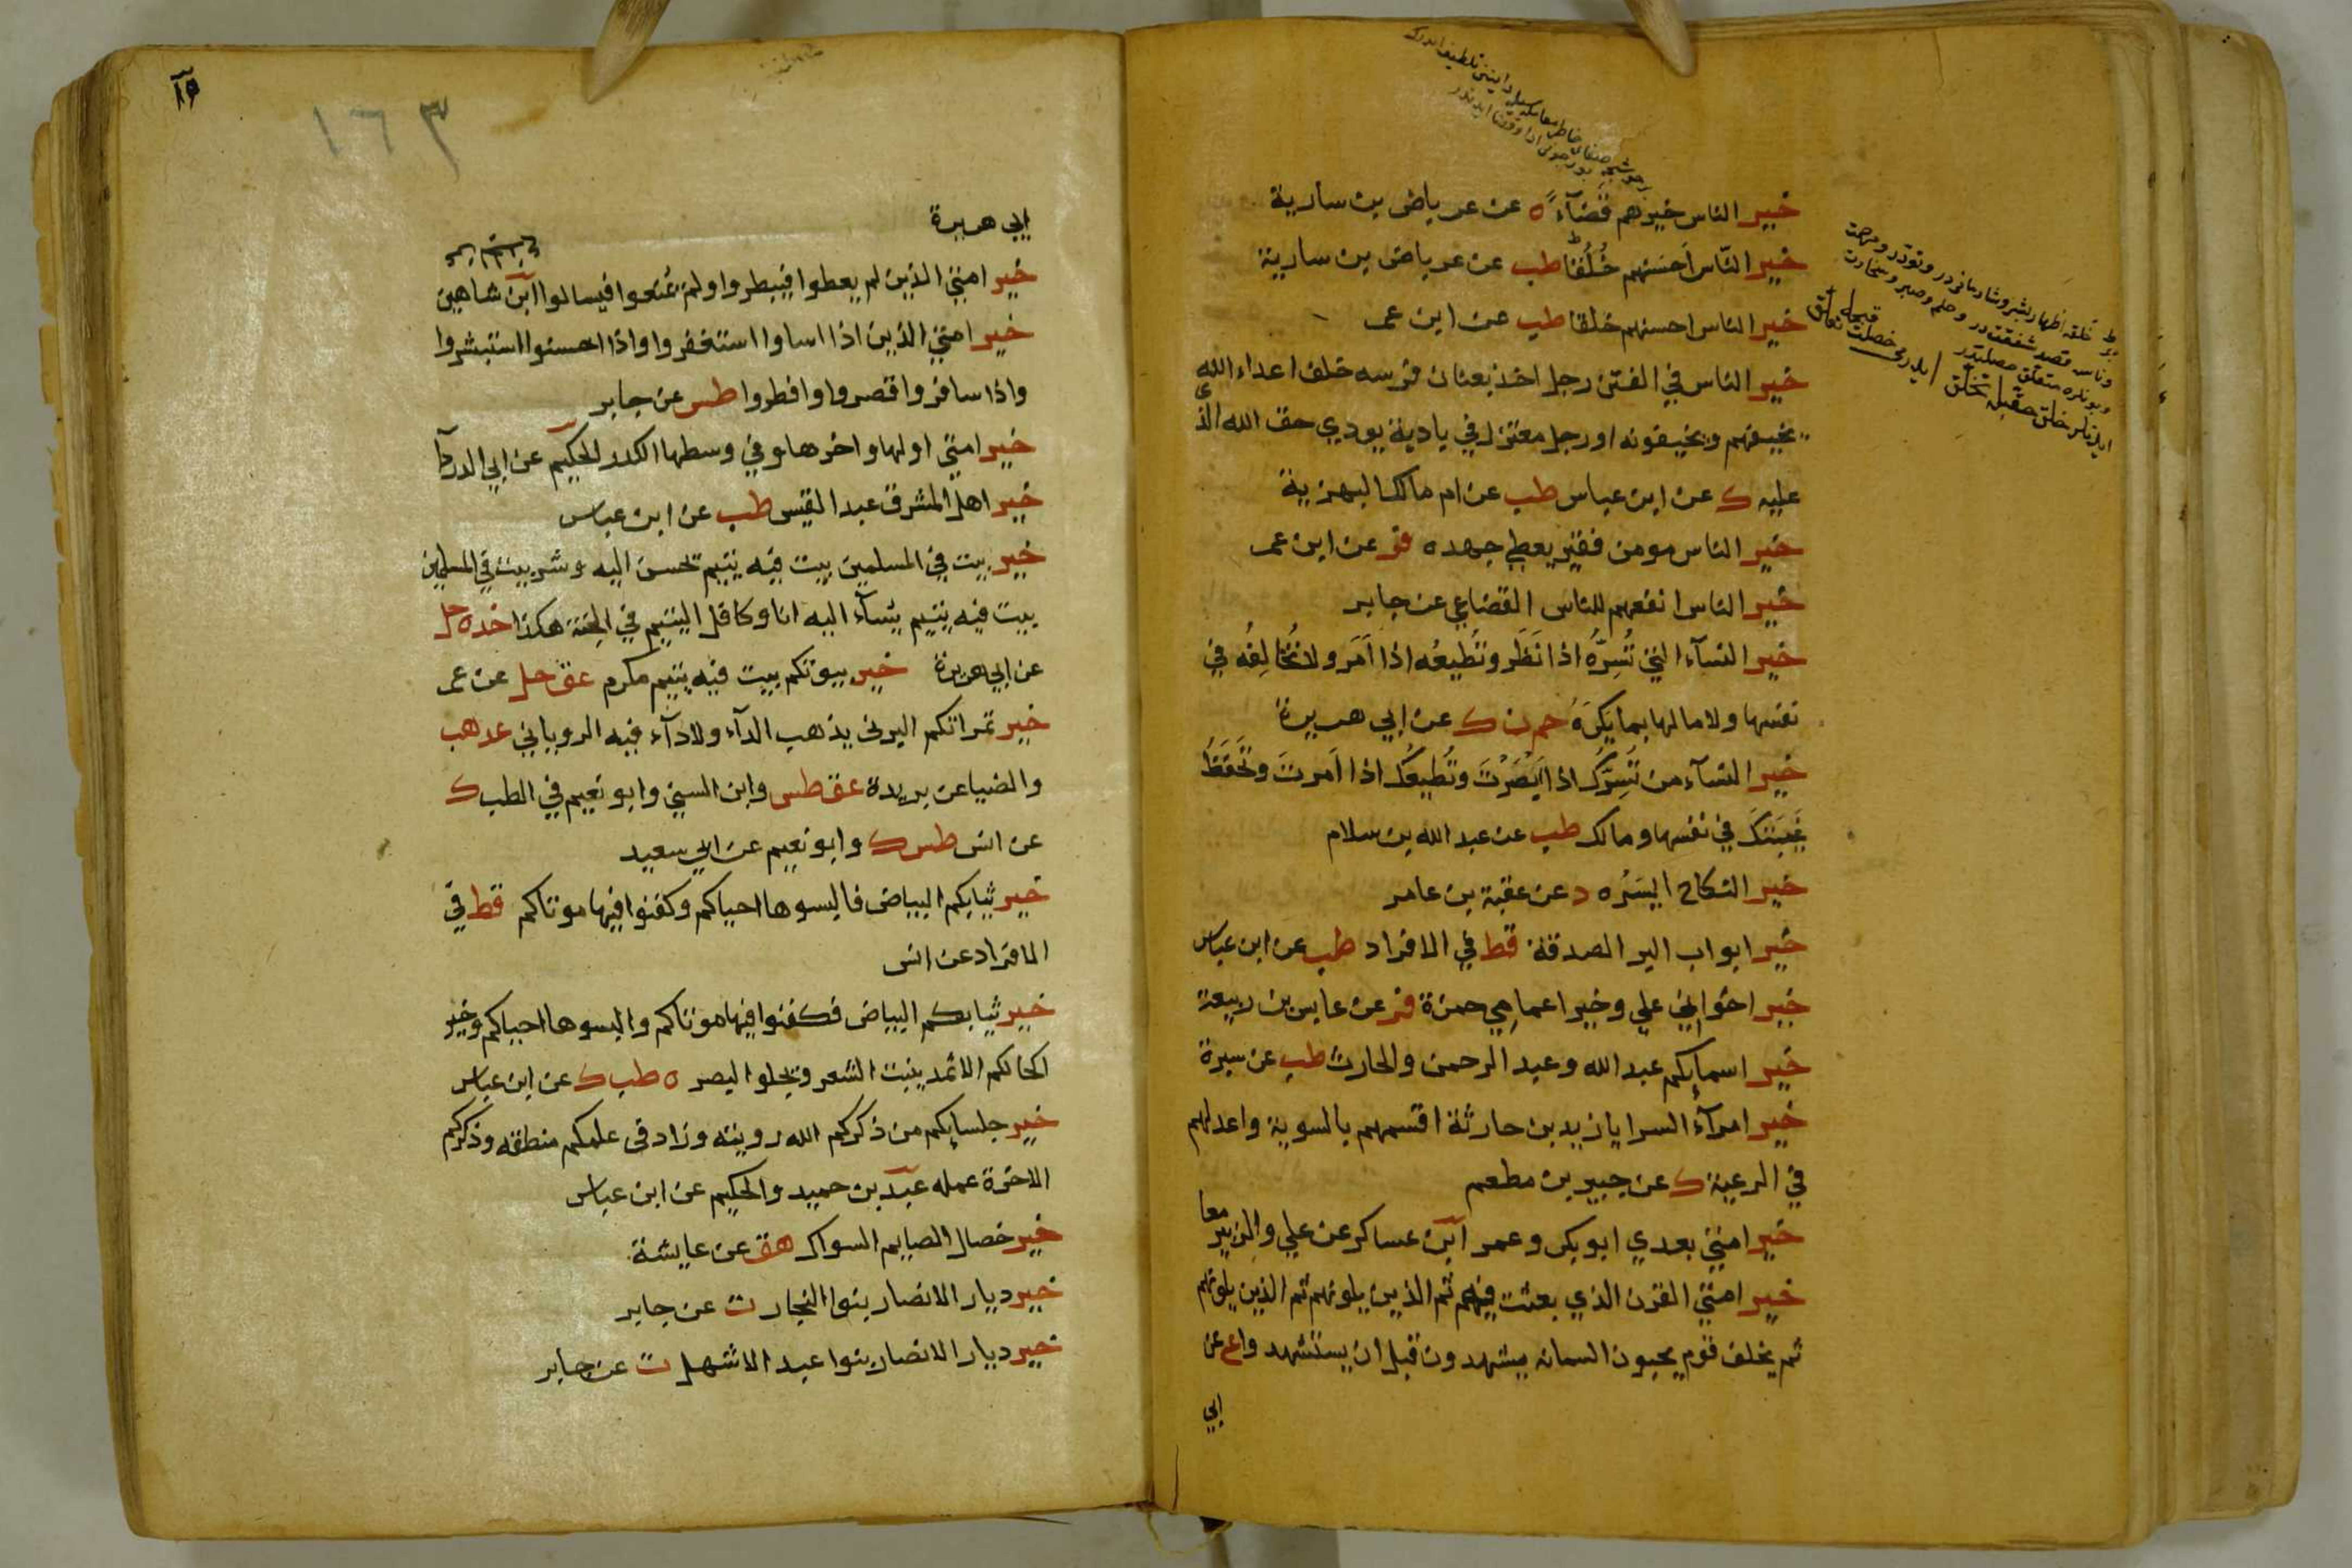 خير الناس خيرهم قضآء ه عن عرباض بن سارية
خير النّاس اَحسَنهم خُلُقًا طب عن عرباض بن سارية
خير الناس احسنهم خلقا طب عن ابن عمر
خير الناس في الفتن رجل اخذ بعنان فرسه خلف اعداء الله
يخيفهم ويخيفونه او رجل معتزل في بادية يودي حق الله الذى
عليه ك عن ابن عباس طب عن ام مالك البهزية
خير الناس مومن فقير يعطي جهده فر عن ابن عمر
خير الناس انفعهم للناس القضاعي عن جابر
خير النسآء التي تُسِرُّهُ اذا نَظَر وتُطيعُه اذا اَمَر ولا تُخَالِفُه في
نفسها ولا مالها بما يَكرَهُ حم ن ك عن ابي هريرة
خير النسآء من تَسِرُّكَ اذا اَبْصَرْتَ وتُطيعُكَ اذا اَمرتَ وتَحفَظُ
غَيبَتَكَ في نفسها ومالك طب عن عبد الله بن سلام
خير النكاح ايسَرُه د عن عقبة بن عامر
خير ابواب البر الصدقة قط في الافراد طب عن ابن عباس
خير اخواني علي وخير اعمامي حمزة فر عن عابس بن ربيعة
خير اسمايكم عبد الله وعبد الرحمن والحارث طب عن سبرة
خير امرآء السرايا زيد بن حارثة اقسمهم بالسوية واعدلهم
في الرعية ك عن جبير بن مطعم
خير امتي بعدي ابو بكر وعمر ابن عساكر عن علي والزبير معا
خير امتي القرن الذي بعثت فيهم ثم الذين يلونهم ثم الذين يلونهم
ثم يخلف قوم يحبون السمانه يشهدون قبل ان يستشهدوا ع عن
ابي
١٦٣
ابي هريرة
خير امتي الذين لم يعطوا فيبطروا ولم يمنعوا فيسالوا ابن شاهين
خير امتي الذين اذا اساوا استغفروا واذا احسنوا استبشروا
واذا سافروا قصروا وافطروا طس عن جابر
خير امتي اولها واخرها وفي وسطها الكدر الحكيم عن ابي الدردآ
خير اهل المشرق عبد القيس طب عن ابن عباس
خير بيت في المسلمين بيت فيه يتيم تحسن اليه وشر بيت في المسلمين
بيت فيه يتيم يسآء اليه انا وكافل اليتيم في الجنة هكذا خد ه حل
عن ابي هريرة خير بيوتكم بيت فيه يتيم مكرم عق حل عن عمر
خير تمراتكم البرني يذهب الدآء ولا دآء فيه الروياني عد هب
والضيا عن بريدة عق طس وابن السني وابو نعيم في الطب ك
عن انس طس ك وابو نعيم عن ابي سعيد
خير ثيابكم البياض فالبسوها احياكم وكفنوا فيها موتاكم قط في
الافراد عن انس
خير ثيابكم البياض فكفنوا فيها موتاكم والبسوها احياكم وخير
اكحالكم الاثمد ينبت الشعر ويجلو البصر ه طب ك عن ابن عباس
خير جلسايكم من ذكركم الله رويته وزاد في علمكم منطقه وذكركم
الاخرة عمله عبد بن حميد والحكيم عن ابن عباس
خير خصال الصايم السواك هق عن عايشة
خير ديار الانصار بنوا النجار ت عن جابر
خير ديار الانصار بنوا عبد الاشهل ت عن جابر